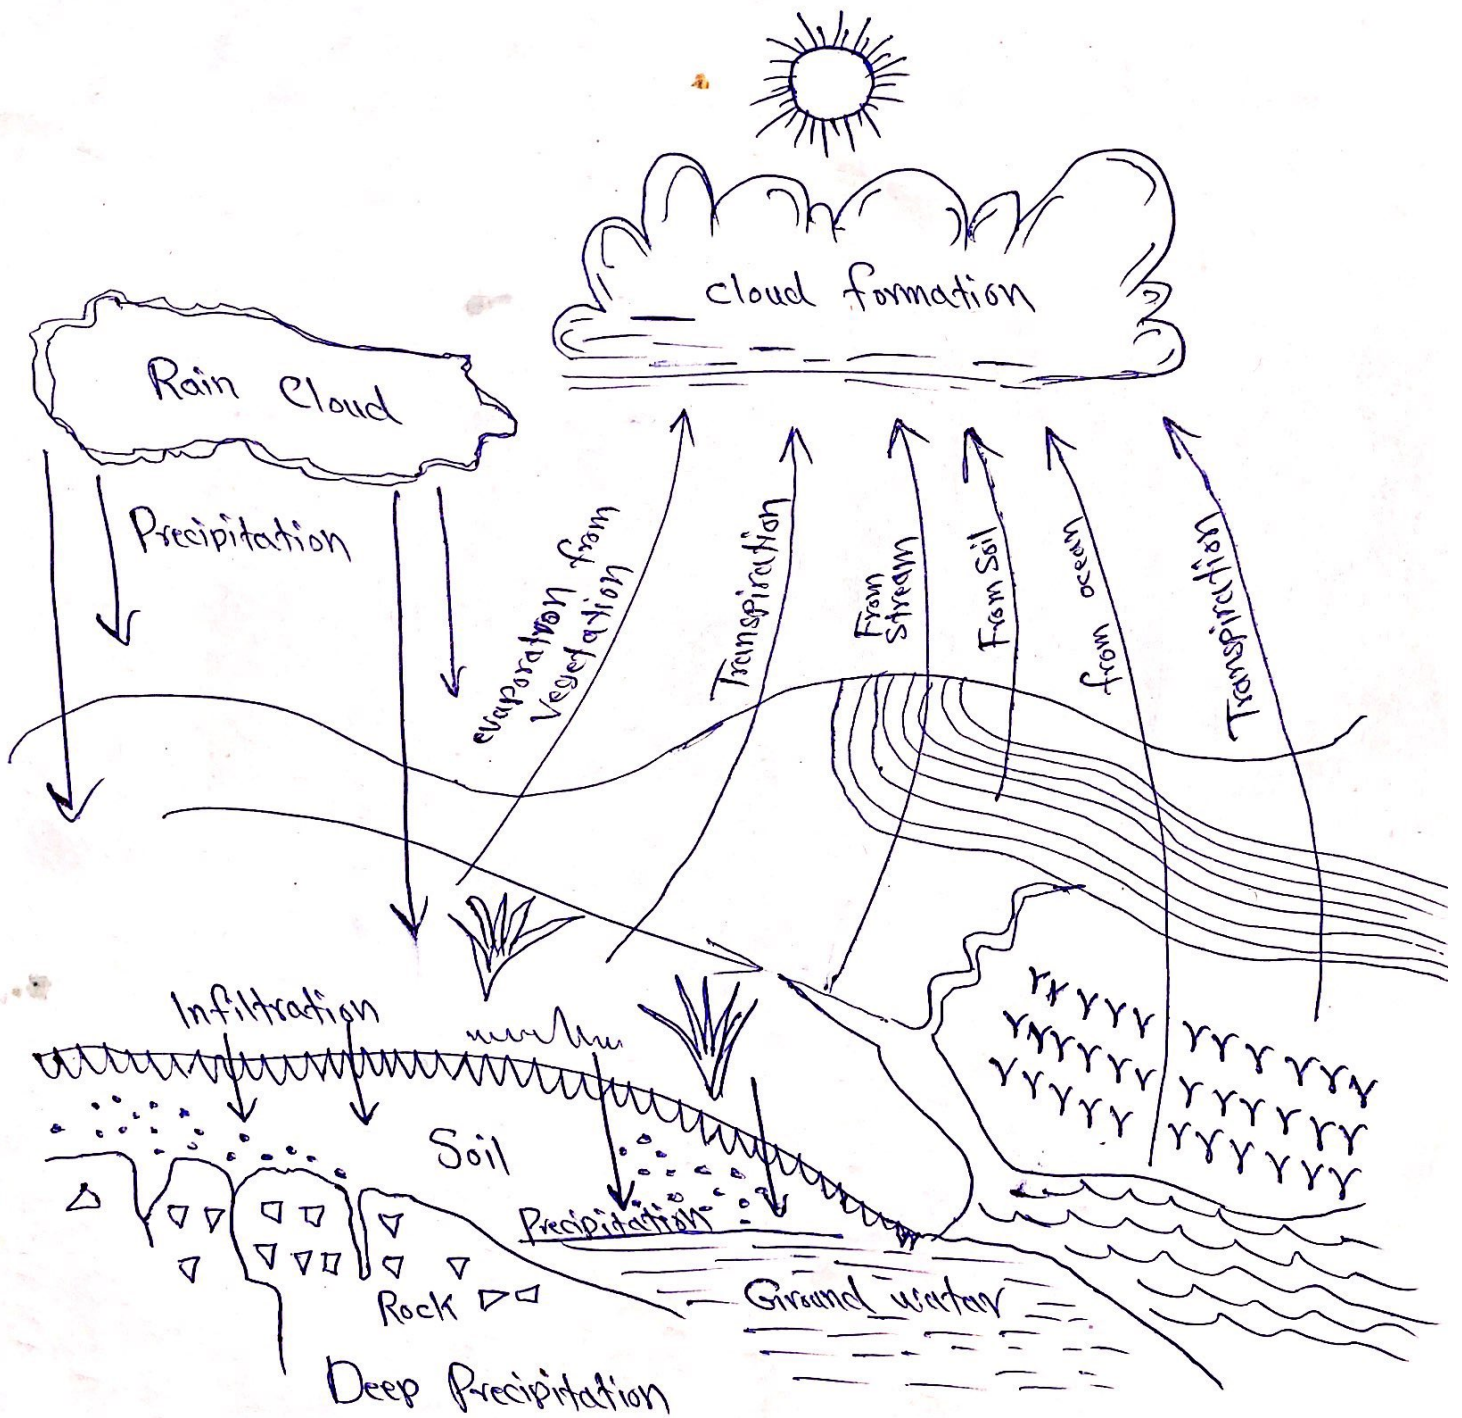 cloud formation
Rain Cloud
Precipitation
evaporation from
Vegetation
Transpiration
From
Stream
From Soil
from ocean
Transpiration
Infiltration
Soil
Precipitation
Ground water
Rock
Deep Precipitation